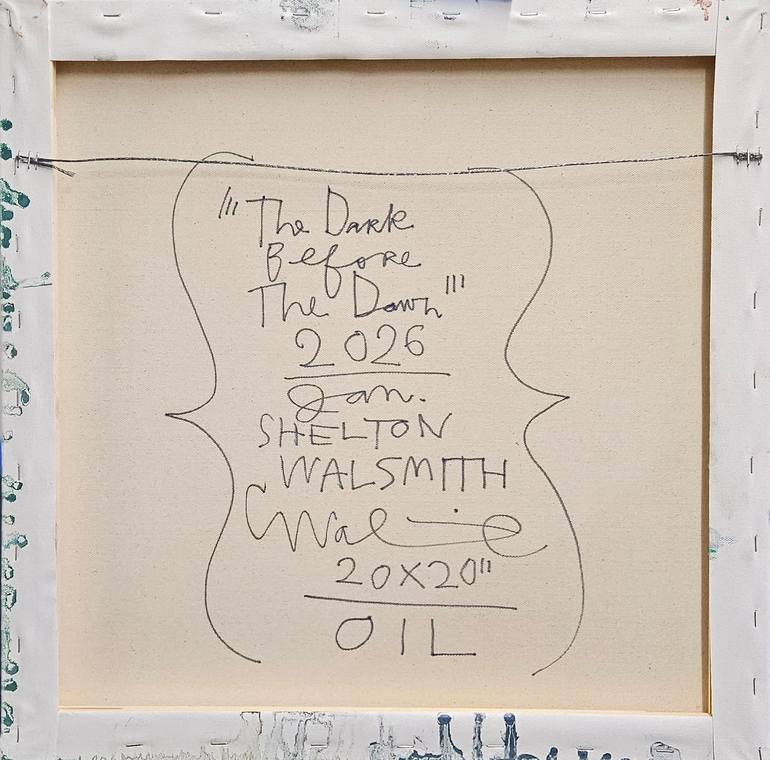 "'The Dark
Before
The Dawn"'
2026
Jan.
SHELTON
WALSMITH
20X20"
OIL